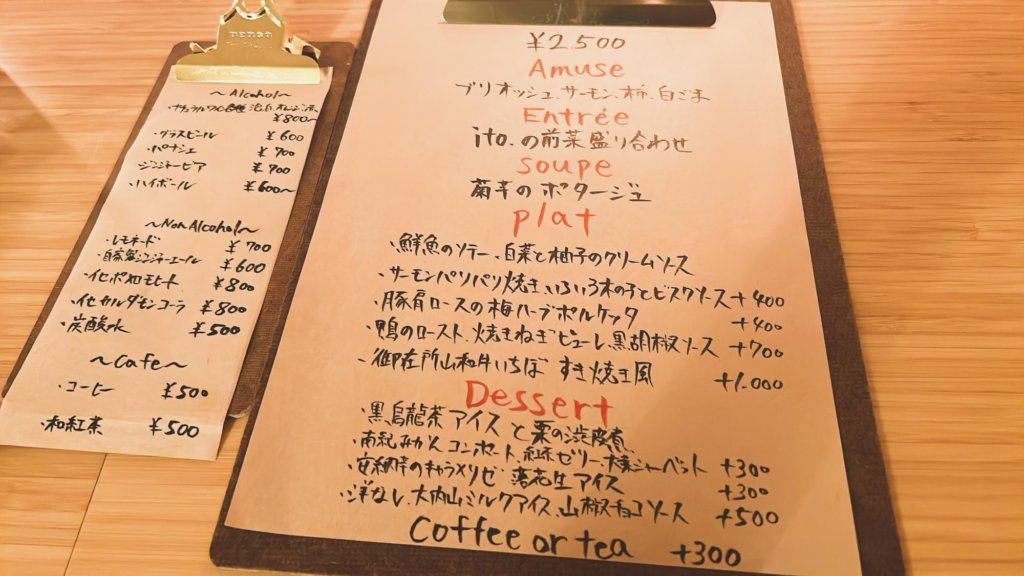 ~Alcohol~
・ナチュラルワイン各種 泡、白、オレンジ、赤
¥800~
・グラスビール ¥600
・パナシェ ¥700
・ジンジャービア ¥700
・ハイボール ¥600~
~Non Alcohol~
・レモネード ¥700
・自家製ジンジャーエール ¥600
・モヒート ¥800
・カルダモンコーラ ¥800
・炭酸水 ¥500
~Cafe~
・コーヒー ¥500
・和紅茶 ¥500
¥2500
Amuse
ブリオッシュ、サーモン、柿、白ごま
Entrée
ito.の前菜盛り合わせ
soupe
菊芋のポタージュ
plat
・鮮魚のソテー、白菜と柚子のクリームソース
・サーモンパリパリ焼き、いろいろ木の子とビスクソース +400
・豚肩ロースの梅ハーブポルケッタ +400
・鴨のロースト、焼きねぎピューレ、黒胡椒ソース +700
・御在所山和牛いちぼ すき焼き風 +1.000
Dessert
・黒烏龍茶アイスと栗の渋皮煮
・南紀みかんコンポート、紅茶ゼリー、シャーベット +300
・安納芋のキャラメリゼ 落花生アイス +300
・洋なし、大内山ミルクアイス、山椒チョコソース +500
Coffee or tea +300